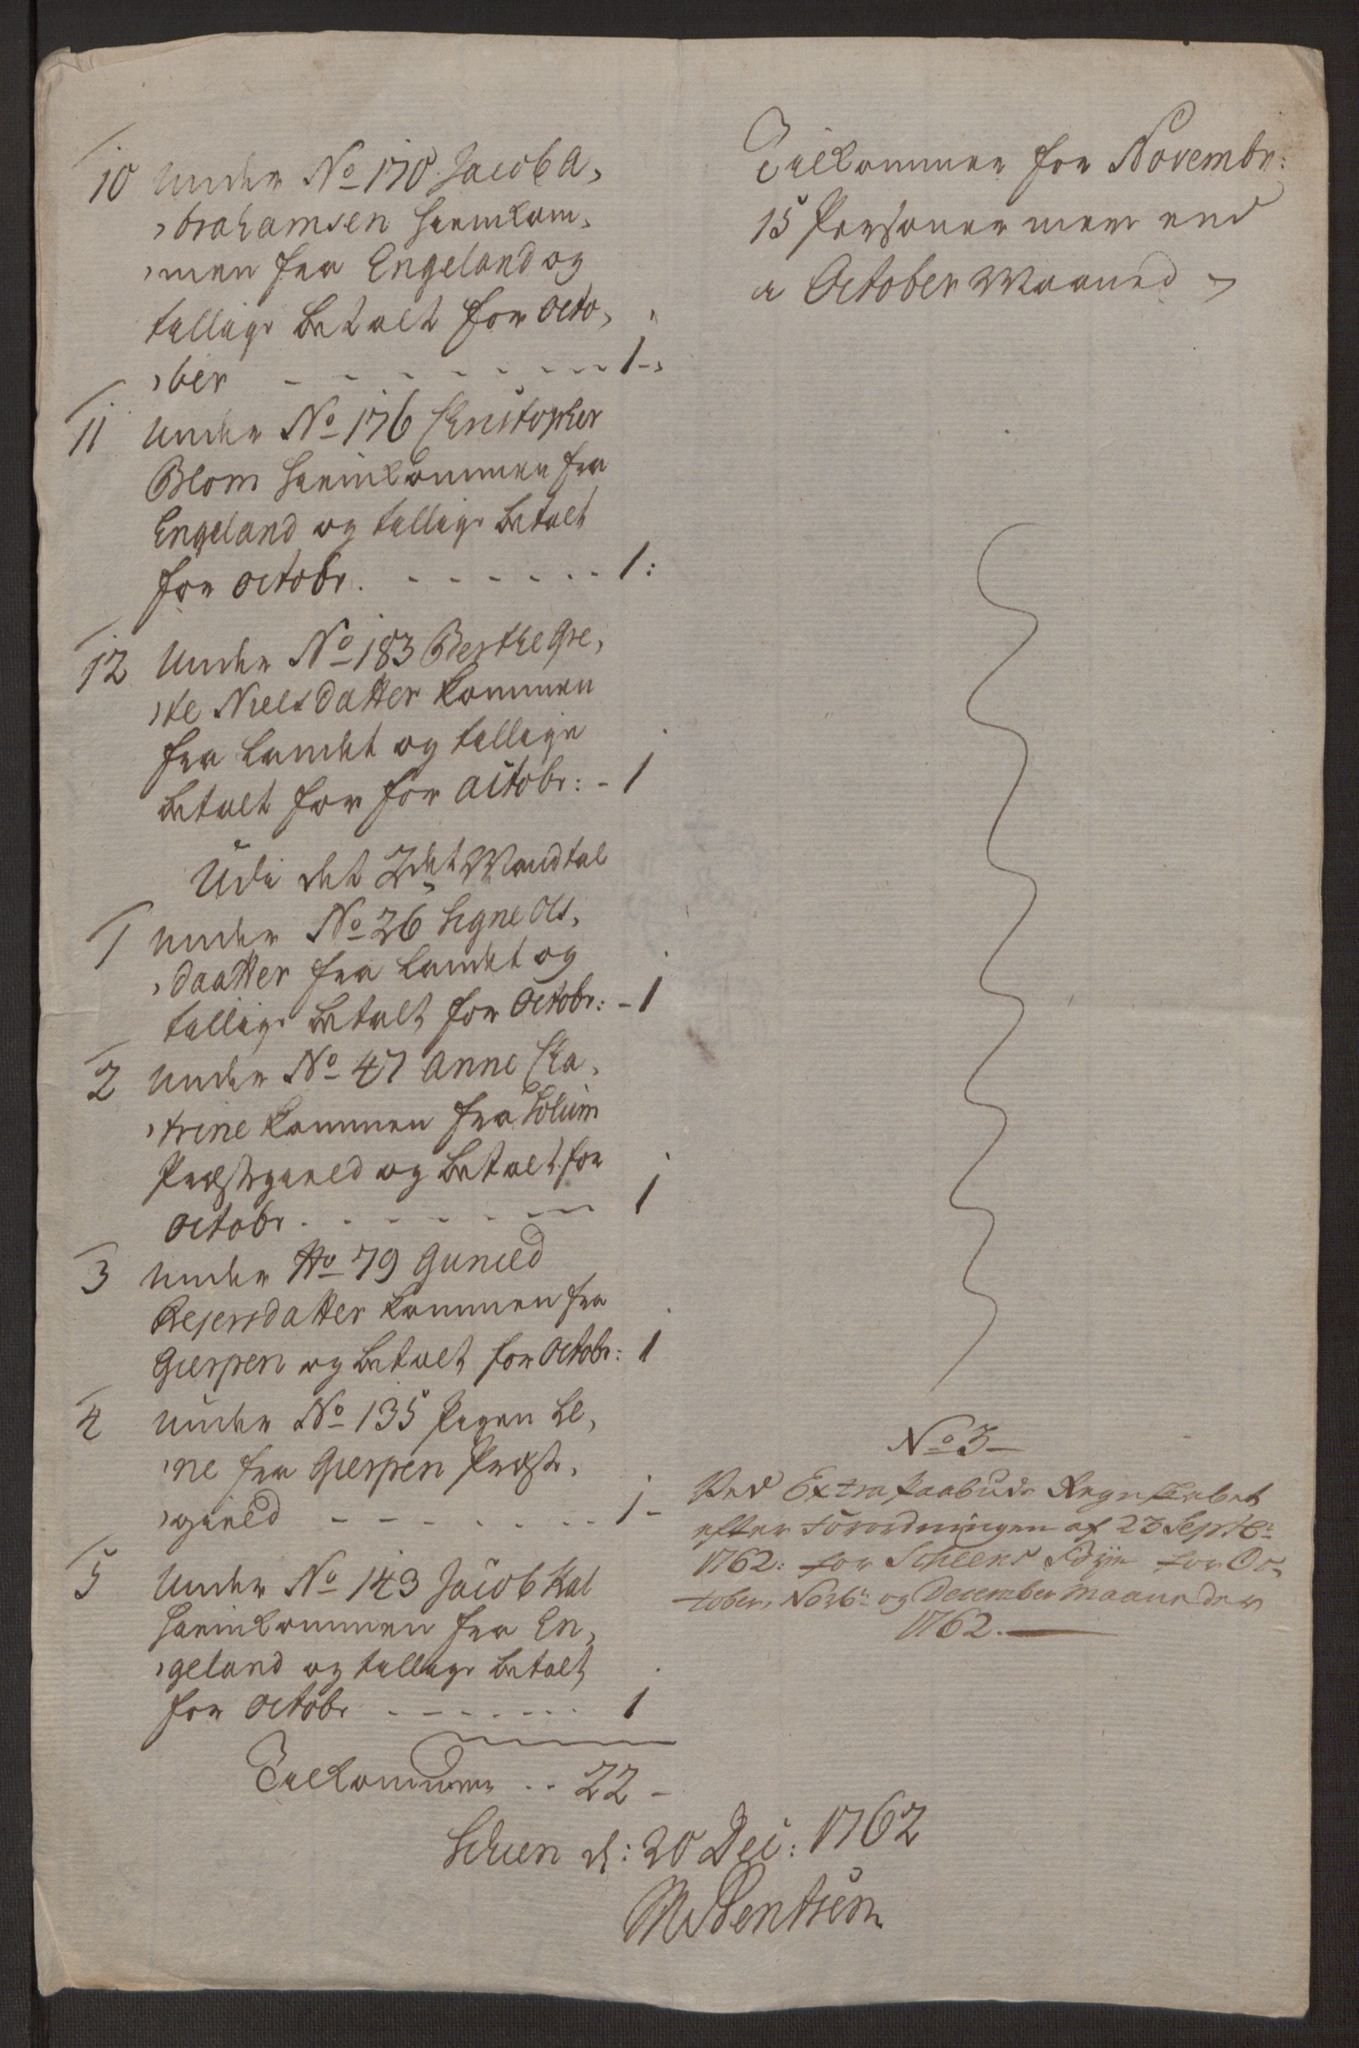 10 Under No 170 Jacob A,
,brahamsen hiemkom,
,men fra Engeland og
tillige betalt for Octo,
,ber - - - - - - - - 1 -
11 Under No 176 Christopher
Blom hiemkommen fra
Engeland og tillige betalt
for octobr. - - - - - - 1:
12 Under No 183 Berthe Gre,
,te Nielsdatter kommen
fra Landet og tillige
betalt for for octobr: - 1
Udi det 2det Mandtal
1 Under No 26 Signe Ols,
,daatter fra Landet og
tillige betalt for Octobr: - 1
2 Under No 47 Anne Cha,
,trine kommen fra Solum
Præstegield og betalt for
Octobr. - - - - - - 1
3 Under No 79 Gunild
Rejersdatter kommen fra
Gierpen og betalt for Octobr: 1
4 Under No 135 Pigen Le,
,ne fra Gierpen Præste,
,gield - - - - - - - 1 -
5 Under No 143 Jacob Kal
hiemkommen fra En,
,geland og tillige betalt
for Octobr - - - - - - 1
Tilkommer .. 22 -
Schien d: 20 Dec: 1762
Tilkommer for Novembr:
15 Personer meer end
i October Maaned
No 3 -
Ved Extra Paabuds Regnskabet
efter Forordningen af 23 Septbr:
1762: for Scheens Bye for Oc,
tober, Novbr: og December Maaneder
1762.